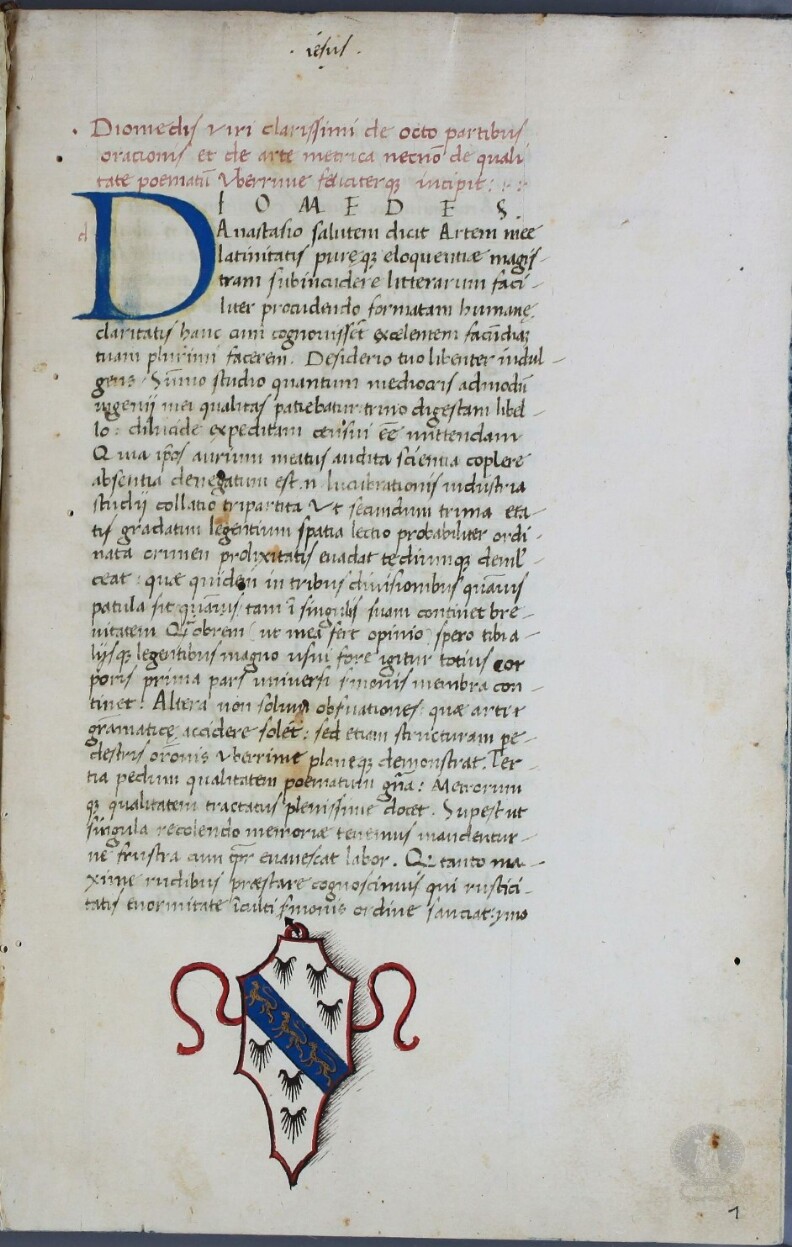 . iesus .
Diomedis viri clarissimi de octo partibus
orationis et de arte metrica necnō de quali
tate poematū Vberrime feliciterqꝫ incipit :
d
D I O M E D E S .
Anastasio salutem dicit Artem mee
latinitatis pureqꝫ eloquentiæ magis-
tram subincudere litterarum faci-
liter procudendo formatam humane
claritatis hanc cum cognouisset excelentem facūdiaꝫ
tuam plurimi facerem . Desiderio tuo libenter indul-
gens Summo studio quantum mediocris admodū
ingenij mei qualitas patiebatur trino digestam libel-
lo : dilucide expeditam censui eē mittendam
Quia ip̄os aurium meatus audita scientia cōplere
absentia denegatum est .n. lucubrationis industria
studij collatio tripartita Vt secundum trima eta-
tis gradatim legentium spatia lectio probabiliter ordi-
nata crimen prolixitatis euadat tediumqꝫ demul-
ceat : quæ quidem in tribus diuisionibus quāuis
patula sit quāuis tam ī singulis suam continet bre-
uitatem Q̄obrem ut mea fert opinio spero tibi a-
lijsqꝫ legentibus magno usui fore igitur totius cor
poris prima pars uniuersi sermonis membra con-
tinet : Altera non solum obseruationes quæ arti
grāmaticę accidere solēt : sed etiam structuram pe-
destris orōnis Vberrime planeqꝫ demonstrat . Ter-
tia pedum qualitatem poematum gn̄a : Metrorum
qꝫ qualitatem tractatus plenissime docet . Supest ut
singula recolendo memoriæ tenemus mandentur
ne frustra cum euanescat labor . Q tanto ma-
xime rudibus præstare cognoscimus qui rustici-
tatis enormitate īculti sermonis ordine sauciat : ymo
1